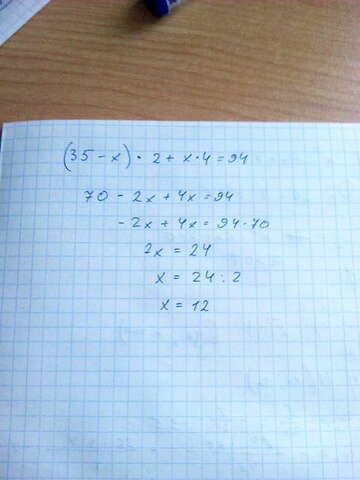 (35 - x) · 2 + x · 4 = 94
70 - 2x + 4x = 94
- 2x + 4x = 94 - 70
2x = 24
x = 24 : 2
x = 12